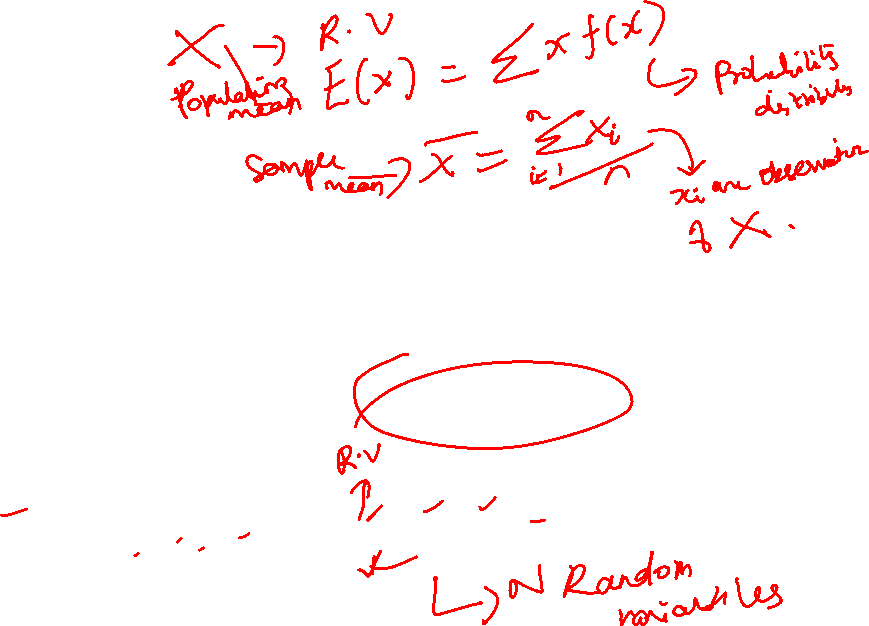 X → R.V
Population mean E(x) = ∑ x f(x)
↳ Probability
distribution
Sample mean → x̄ = ∑ᵢ₌₁ⁿ xᵢ / n
xᵢ are observation
of X.
R.V
↳ N Random
variables